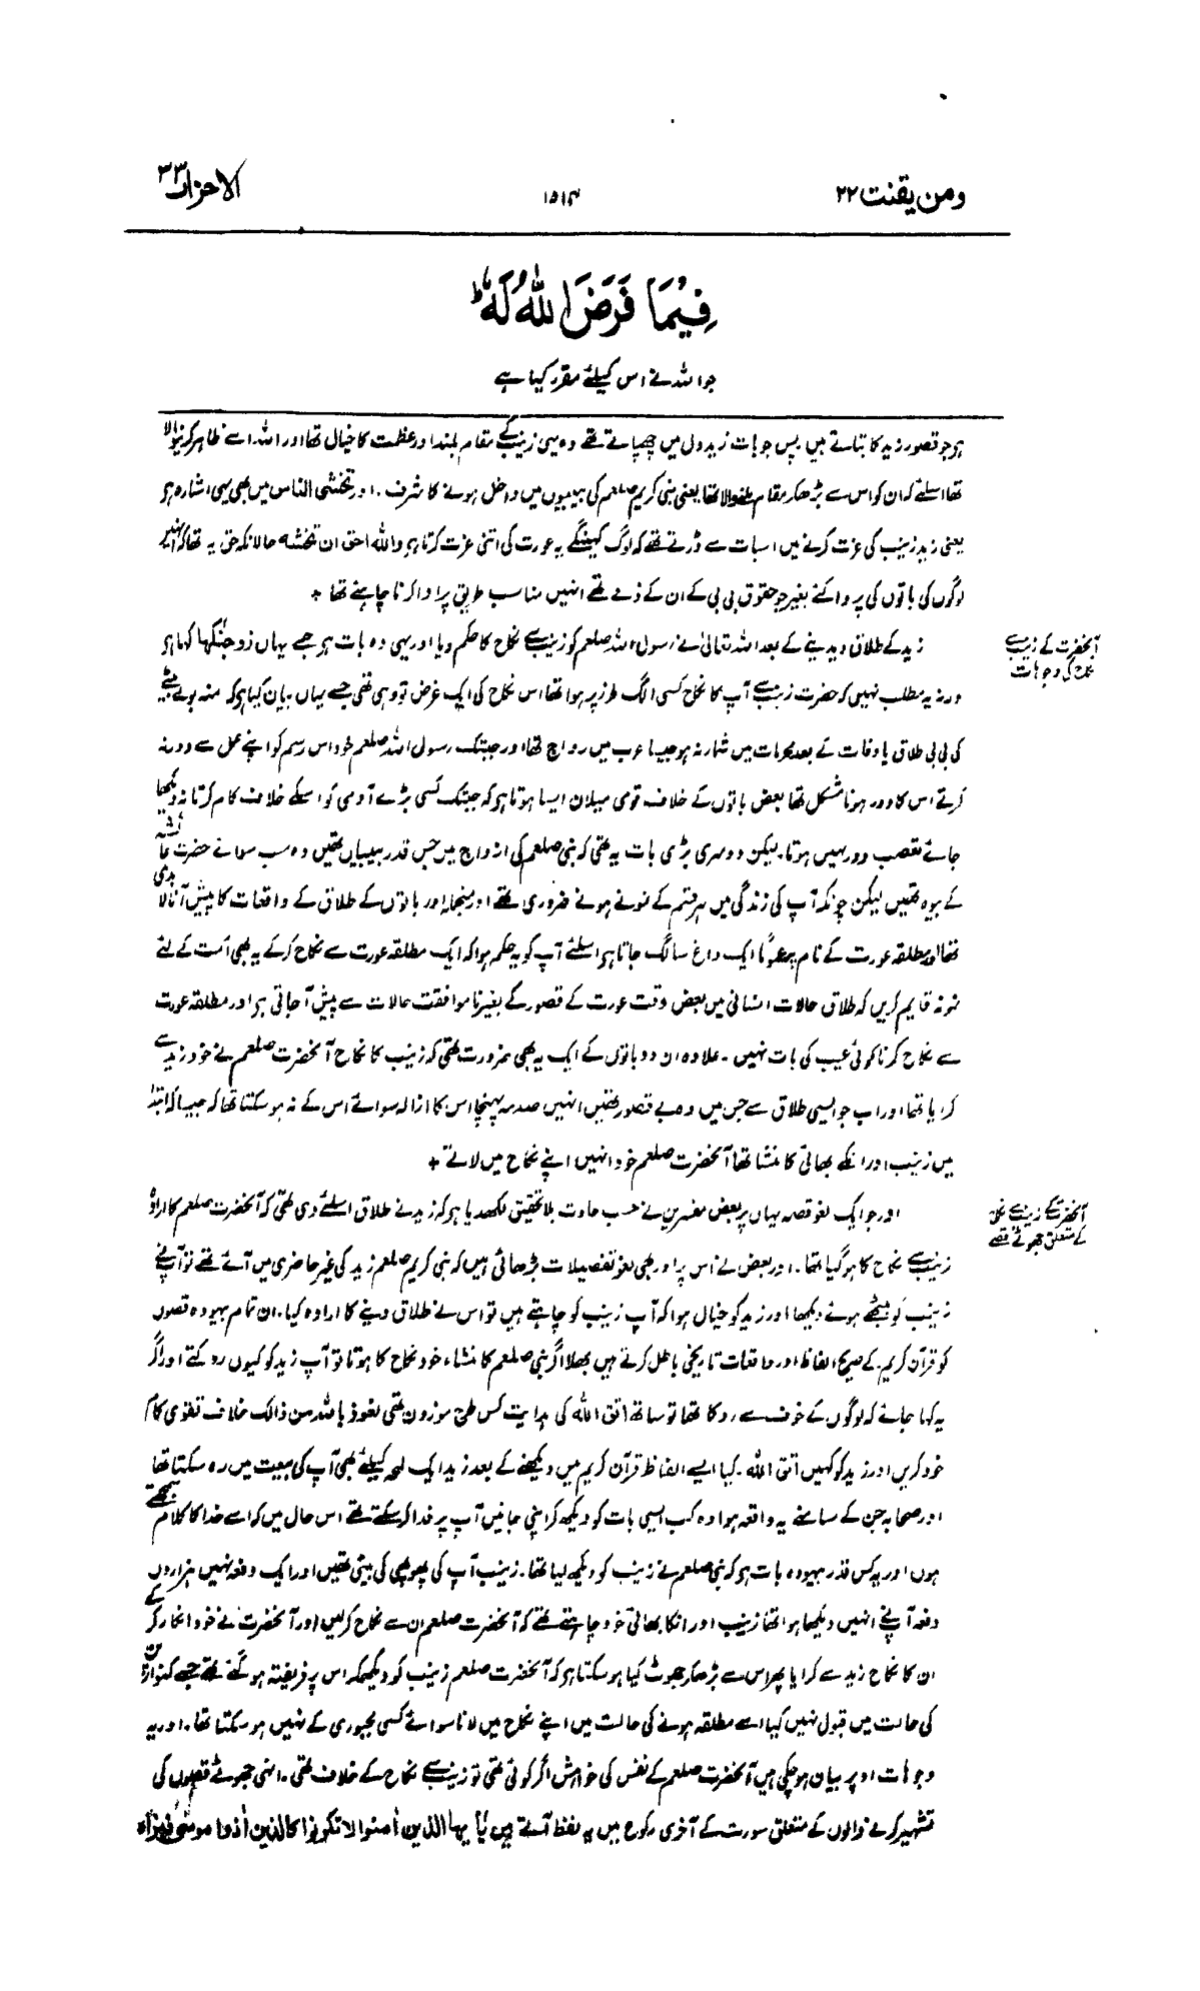 ومن یقنت ۲۲
۱۵۱۴
الاحزاب ۳۳
فِيْمَا فَرَضَ اللّٰهُ لَهٗ ؕ
جو اللہ نے اس کیلئے مقرر کیا ہے
ہو جو قصور زید کا بتاتے ہیں پس جو بات زید دل میں چھپاتے تھے وہ یہی زینب کے مقام بلند اور عظمت کا خیال تھا اور اللہ اسے ظاہر کرنیوالا
تھا اسلئے کہ ان کو اس سے بڑھکر مقام ملنے والا تھا یعنی نبی کریم صلعم کی بیبیوں میں داخل ہونے کا شرف ۔ اور تخشی الناس میں بھی یہی اشارہ ہو
یعنی زید زینب کی عزت کرنے میں اسبات سے ڈرتے تھے کہ لوگ کہینگے یہ عورت کی اتنی عزت کرتا ہو واللہ احق ان تخشہ حالانکہ حق یہ تھا کہ انہیں
لوگوں کی باتوں کی پروا کئے بغیر جو حقوق بی بی کے ان کے ذمے تھے انہیں مناسب طریق پر ادا کرنا چاہئے تھا +
آنحضرت کے زینب سے
نکاح کی وجوہات
زید کے طلاق دیدینے کے بعد اللہ تعالیٰ نے رسول اللہ صلعم کو زینب سے نکاح کا حکم دیا اور یہی وہ بات ہو جسے یہاں زوجنٰکھا کہا ہو
ورنہ یہ مطلب نہیں کہ حضرت زینب سے آپ کا نکاح کسی الگ طرز پر ہوا تھا اس نکاح کی ایک غرض تو وہی تھی جسے یہاں بیان کیا ہو کہ منہ بولے بیٹے
کی بی بی طلاق یا وفات کے بعد محرمات میں شمار نہ ہو جیسا عرب میں رواج تھا اور جبتک رسول اللہ صلعم خود اس رسم کو اپنے عمل سے دور نہ
کرتے اس کا دور ہونا مشکل تھا بعض باتوں کے خلاف قومی میلان ایسا ہوتا ہو کہ جبتک کسی بڑے آدمی کو اسکے خلاف کام کرتا نہ دیکھا
جائے تعصب دور نہیں ہوتا ۔ لیکن دوسری بڑی بات یہ تھی کہ نبی صلعم کی ازواج میں جس قدر بیبیاں تھیں وہ سب سوائے حضرت عائشہ
کے بیوہ تھیں لیکن چونکہ آپ کی زندگی میں ہر قسم کے نمونے ہونے ضروری تھے اور منجملہ اور باتوں کے طلاق کے واقعات کا پیش آنا لابدی
تھا اور مطلقہ عورت کے نام پر عموماً ایک داغ سا لگ جاتا ہو اسلئے آپ کو یہ حکم ہوا کہ ایک مطلقہ عورت سے نکاح کرکے یہ بھی امت کے لئے
نمونہ قایم کریں کہ طلاق حالات انسانی میں بعض وقت عورت کے قصور کے بغیر ناموافقت حالات سے پیش آجاتی ہو اور مطلقہ عورت
سے نکاح کرنا کوئی عیب کی بات نہیں ۔ علاوہ ان دو باتوں کے ایک یہ بھی ضرورت تھی کہ زینب کا نکاح آنحضرت صلعم نے خود زید سے
کرایا تھا اور اب جو ایسی طلاق سے جس میں وہ بے قصور تھیں انہیں صدمہ پہنچا اس کا ازالہ سوائے اس کے نہ ہوسکتا تھا کہ جیسا کہ ابتدا
میں زینب اور انکے بھائی کا منشا تھا آنحضرت صلعم خود انہیں اپنے نکاح میں لاتے +
آنحضرت کے زینب سے نکاح
کے متعلق جھوٹے قصے
اور جو ایک لغو قصہ یہاں پر بعض مفسرین نے حسب عادت بلا تحقیق لکھدیا ہو کہ زید نے طلاق اسلئے دی تھی کہ آنحضرت صلعم کا ارادہ
زینب سے نکاح کا ہوگیا تھا ۔ اور بعض نے اس پر اور بھی لغو تفصیلات بڑھائی ہیں کہ نبی کریم صلعم زید کی غیر حاضری میں آئے تھے تو آپ نے
زینب کو بیٹھے ہوئے دیکھا اور زید کو خیال ہوا کہ آپ زینب کو چاہتے ہیں تو اس نے طلاق دینے کا ارادہ کیا ۔ ان تمام بیہودہ قصوں
کو قرآن کریم کے صریح الفاظ اور واقعات تاریخی باطل کرتے ہیں بھلا اگر نبی صلعم کا منشاء خود نکاح کا ہوتا تو آپ زید کو کیوں روکتے اور اگر
یہ کہا جائے کہ لوگوں کے خوف سے روکا تھا تو ساتھ اتق اللہ کی ہدایت کس طرح موزون تھی نعوذ باللہ من ذالک خلاف تقویٰ کام
خود کریں اور زید کو کہیں اتق اللہ ۔ کیا ایسے الفاظ قرآن کریم میں دیکھنے کے بعد زید ایک لمحہ کیلئے بھی آپ کی معیت میں رہ سکتا تھا
اور صحابہ جن کے سامنے یہ واقعہ ہوا وہ کب ایسی بات کو دیکھ کر اپنی جانیں آپ پر فدا کرسکتے تھے اس حال میں کہ اسے خدا کا کلام سمجھتے
ہوں اور یہ کس قدر بیہودہ بات ہو کہ نبی صلعم نے زینب کو دیکھ لیا تھا ۔ زینب آپ کی پھوپھی کی بیٹی تھیں اور ایک دفعہ نہیں ہزاروں
دفعہ آپ نے انہیں دیکھا ہوا تھا زینب اور انکا بھائی خود چاہتے تھے کہ آنحضرت صلعم ان سے نکاح کرلیں اور آنحضرت نے خود انکار کرکے
ان کا نکاح زید سے کرایا پھر اس سے بڑھکر جھوٹ کیا ہوسکتا ہو کہ آنحضرت صلعم زینب کو دیکھکر اس پر فریفتہ ہوگئے تھے جسے کنوارپن
کی حالت میں قبول نہیں کیا اسے مطلقہ ہونے کی حالت میں اپنے نکاح میں لانا سوائے کسی مجبوری کے نہیں ہوسکتا تھا ۔ اور یہ
وجوہات اوپر بیان ہوچکی ہیں آنحضرت صلعم کے نفس کی خواہش اگر کوئی تھی تو زینب سے نکاح کے خلاف تھی ۔ انہی جھوٹے قصوں کی
تشہیر کرنے والوں کے متعلق سورت کے آخری رکوع میں یہ لفظ آتے ہیں یٰایھا الذین اٰمنوا لا تکونوا کالذین اٰذوا موسیٰ فبراہ